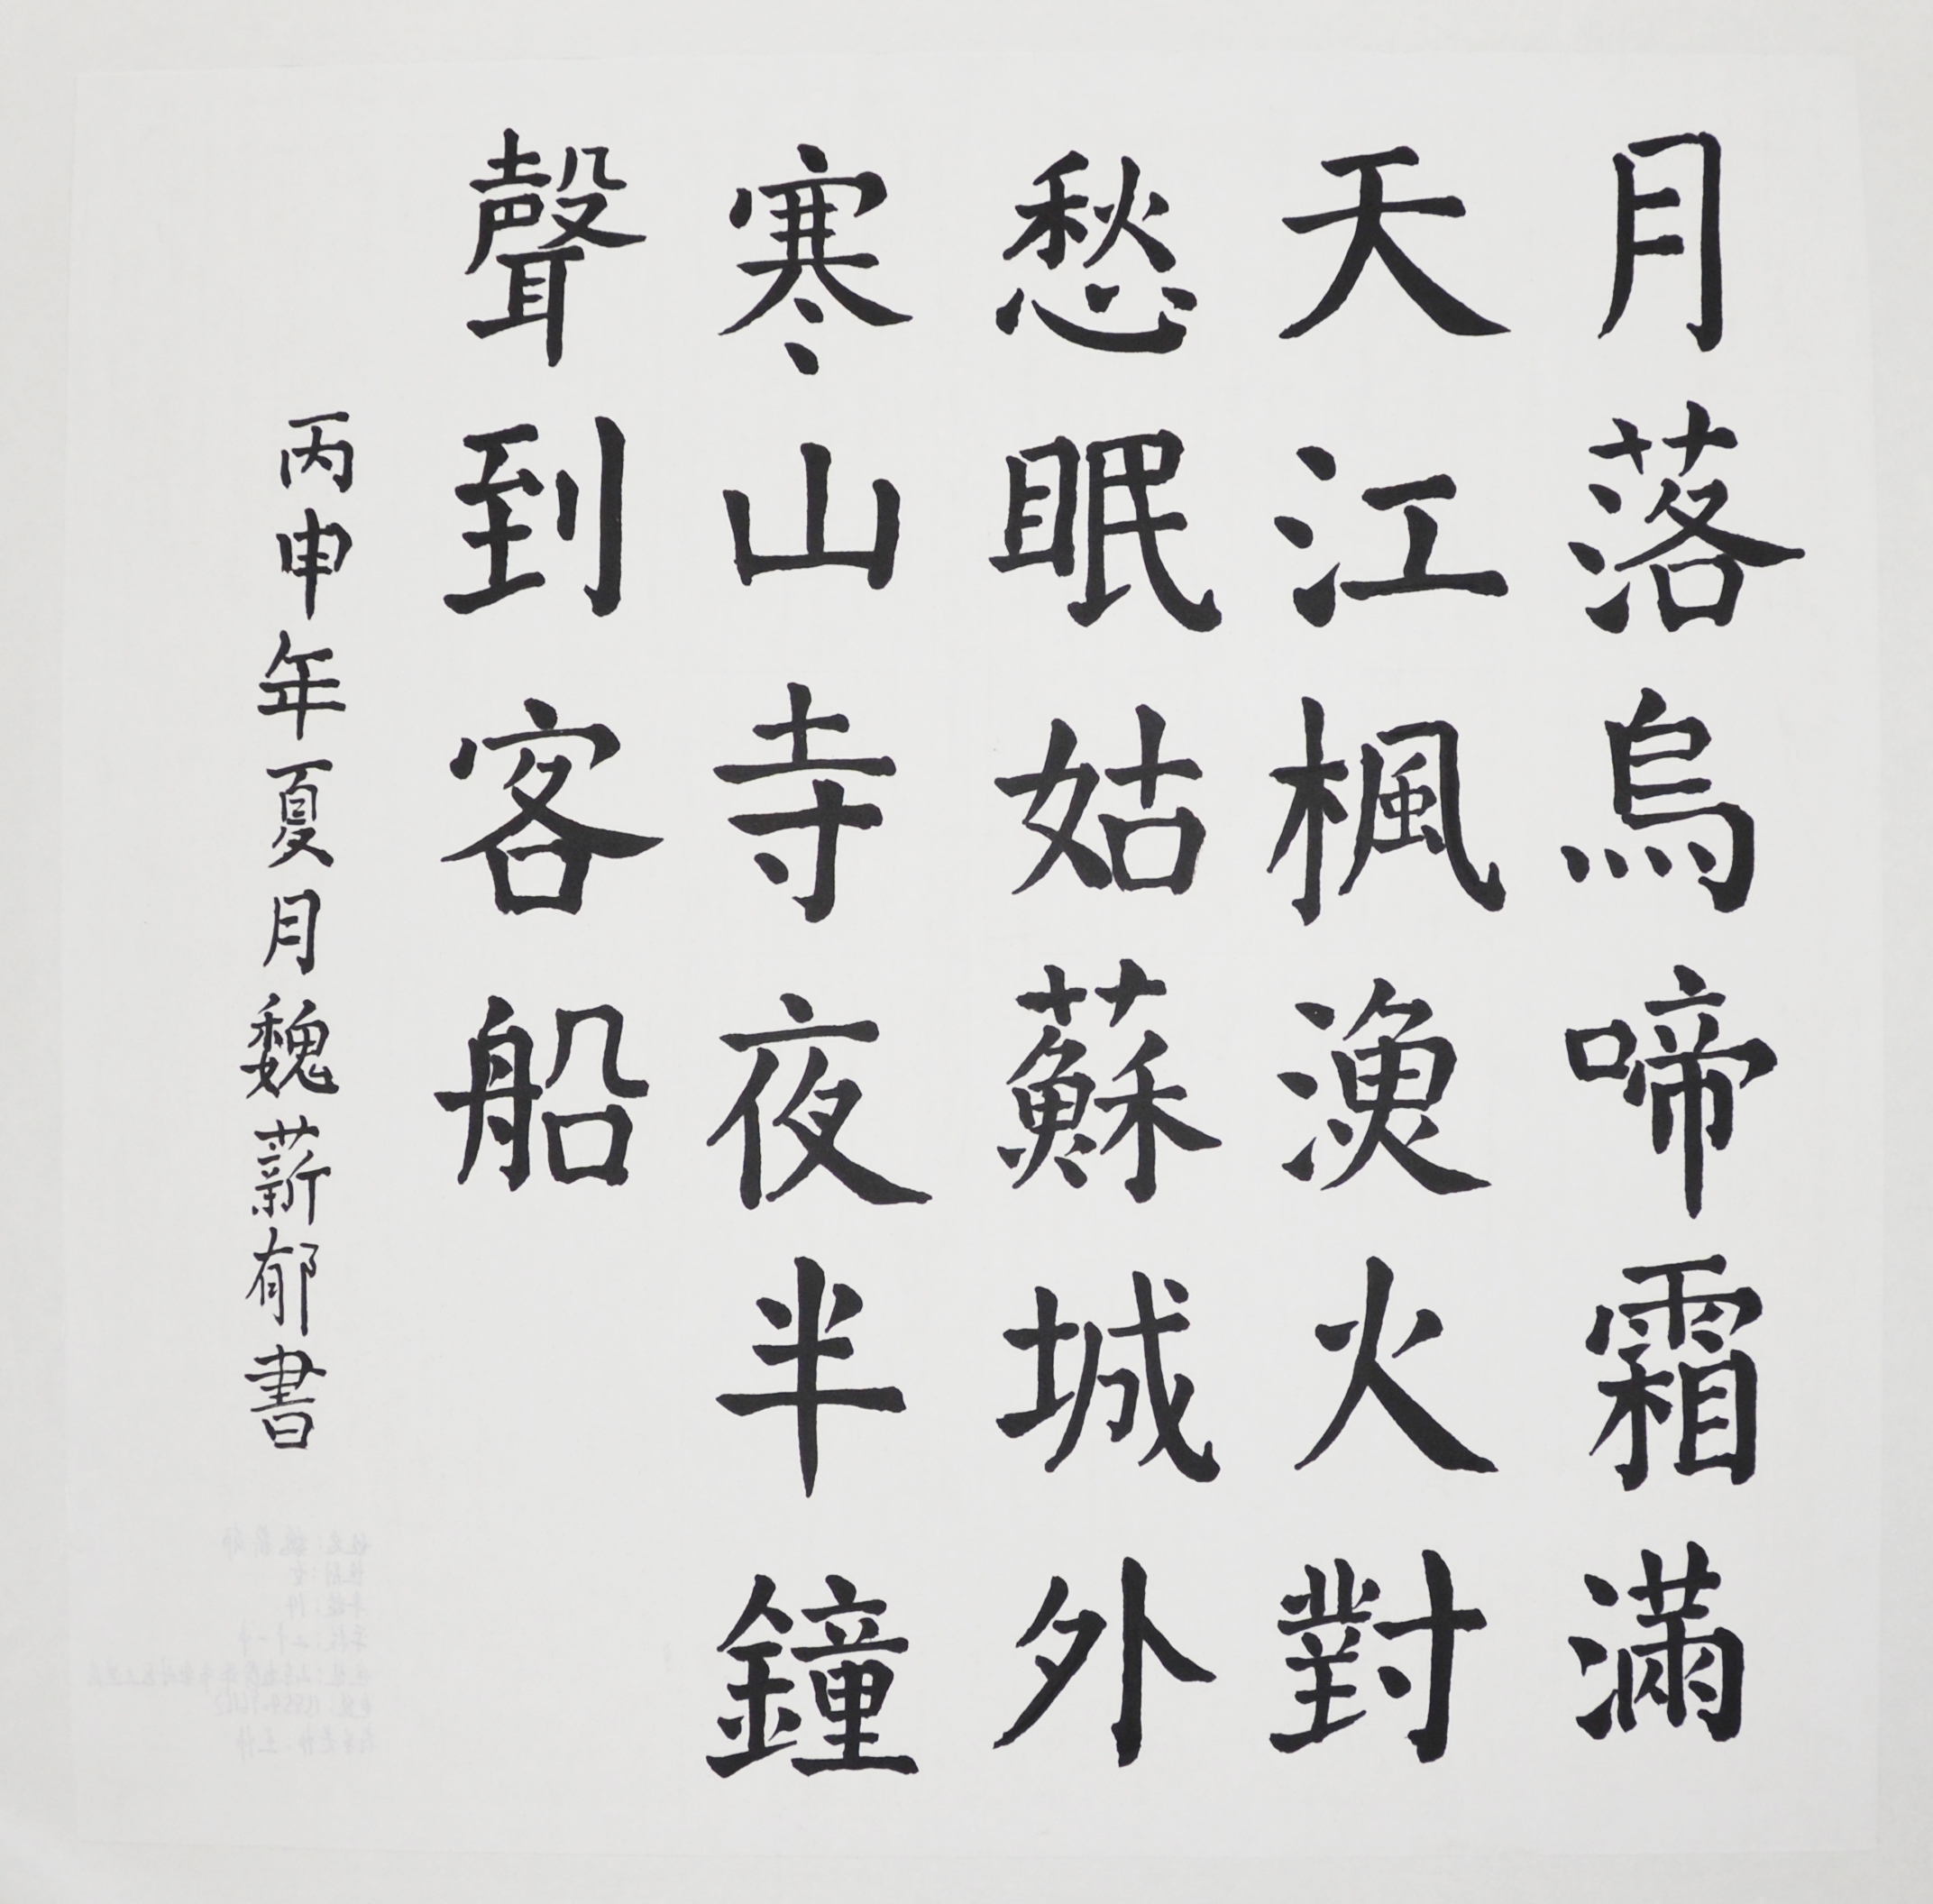 月落烏啼霜滿
天江楓漁火對
愁眠姑蘇城外
寒山寺夜半鐘
聲到客船
丙申年夏月魏薪郁書